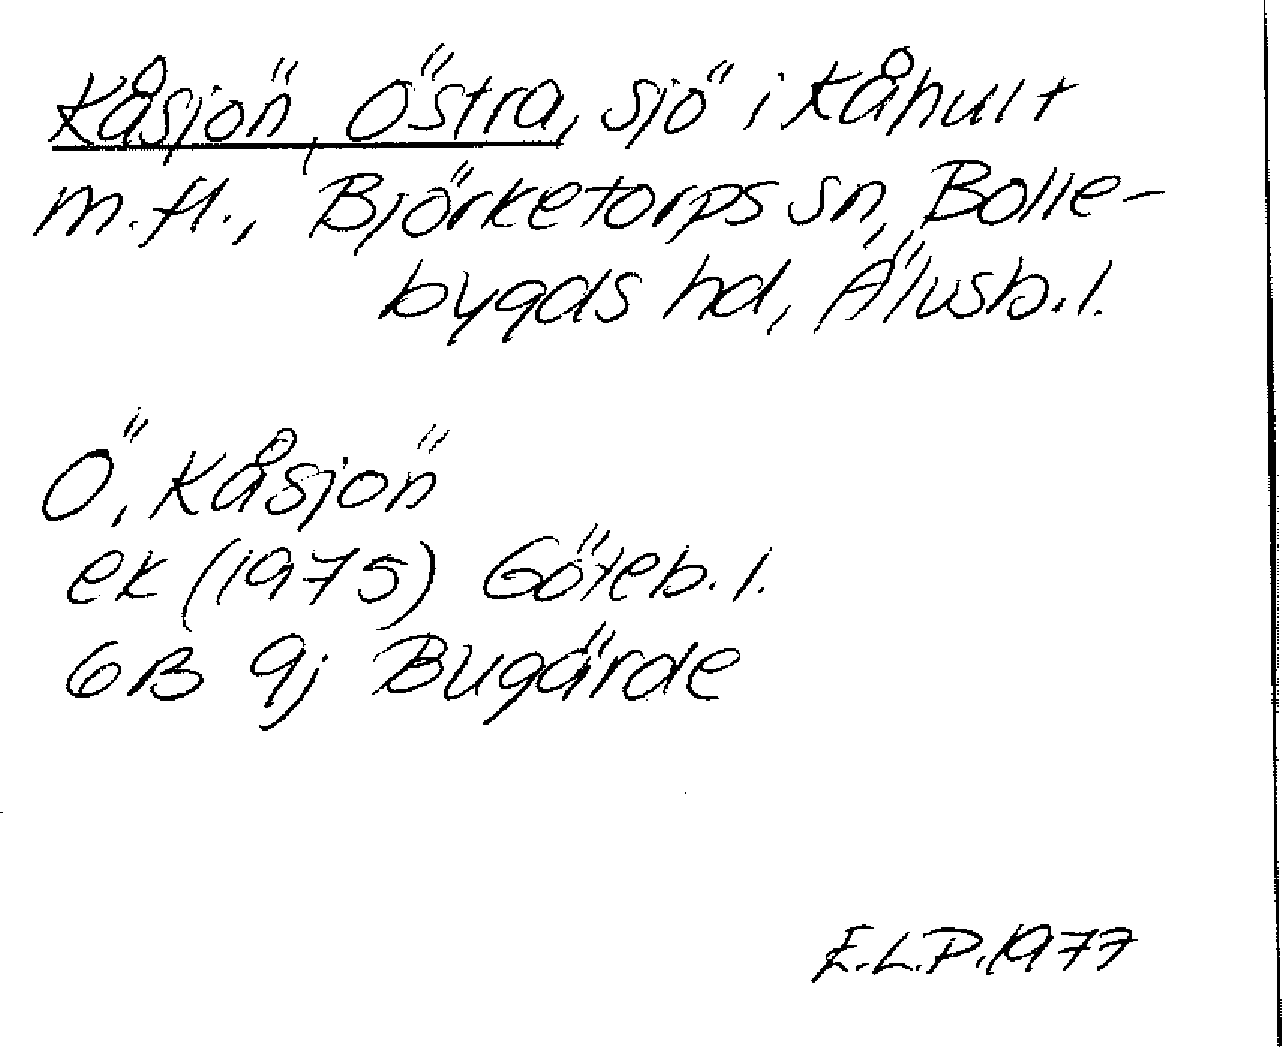 Kåsjön, Östra, sjö i Kåhult
m.fl., Björketorps sn, Bolle-
bygds hd, Älvsb.l.
Ö, Kåsjön
ek (1975) Göteb.l.
6B 9j Bugärde
E.L.P. 1977